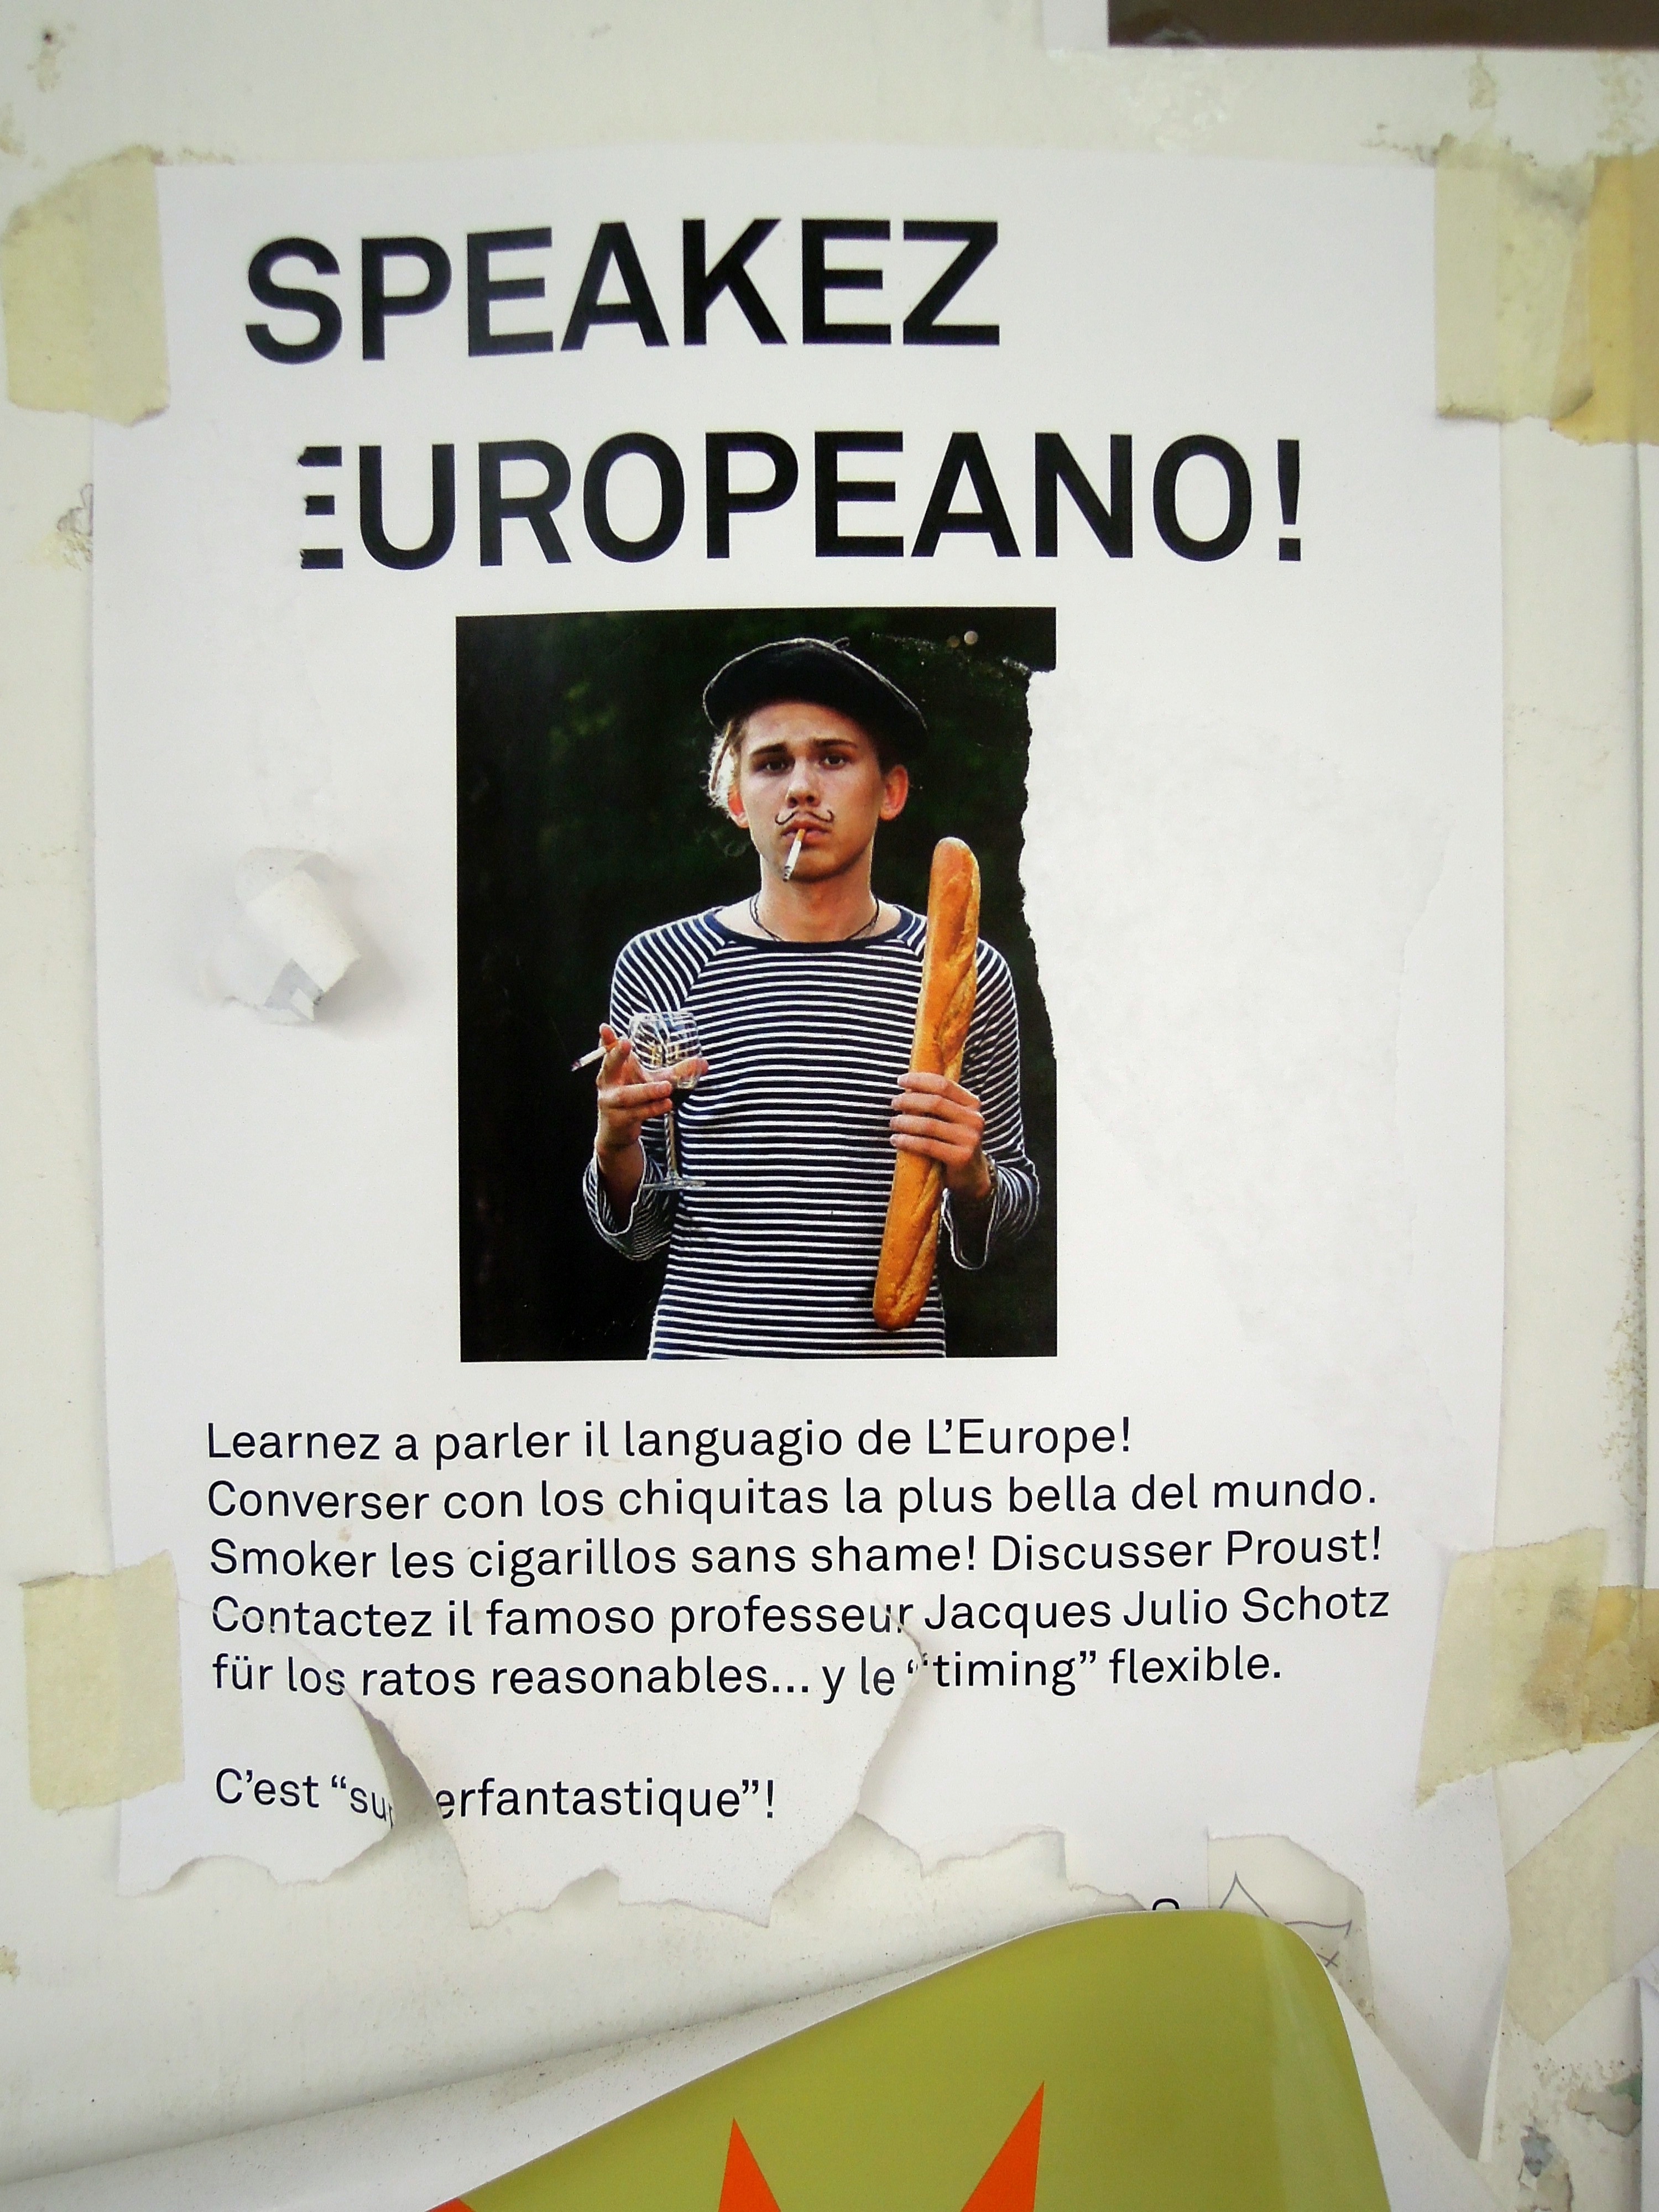 SPEAKEZ
EUROPEANO!
Learnez a parler il languagio de L'Europe!
Converser con los chiquitas la plus bella del mundo.
Smoker les cigarillos sans shame! Discusser Proust!
Contactez il famoso professeur Jacques Julio Schotz
für los ratos reasonables... y le “timing” flexible.
C'est “superfantastique”!